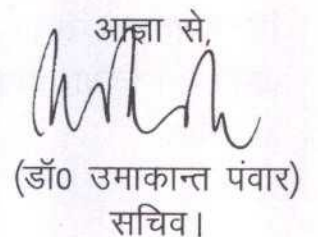 आज्ञा से,
(डॉ0 उमाकान्त पंवार)
सचिव।